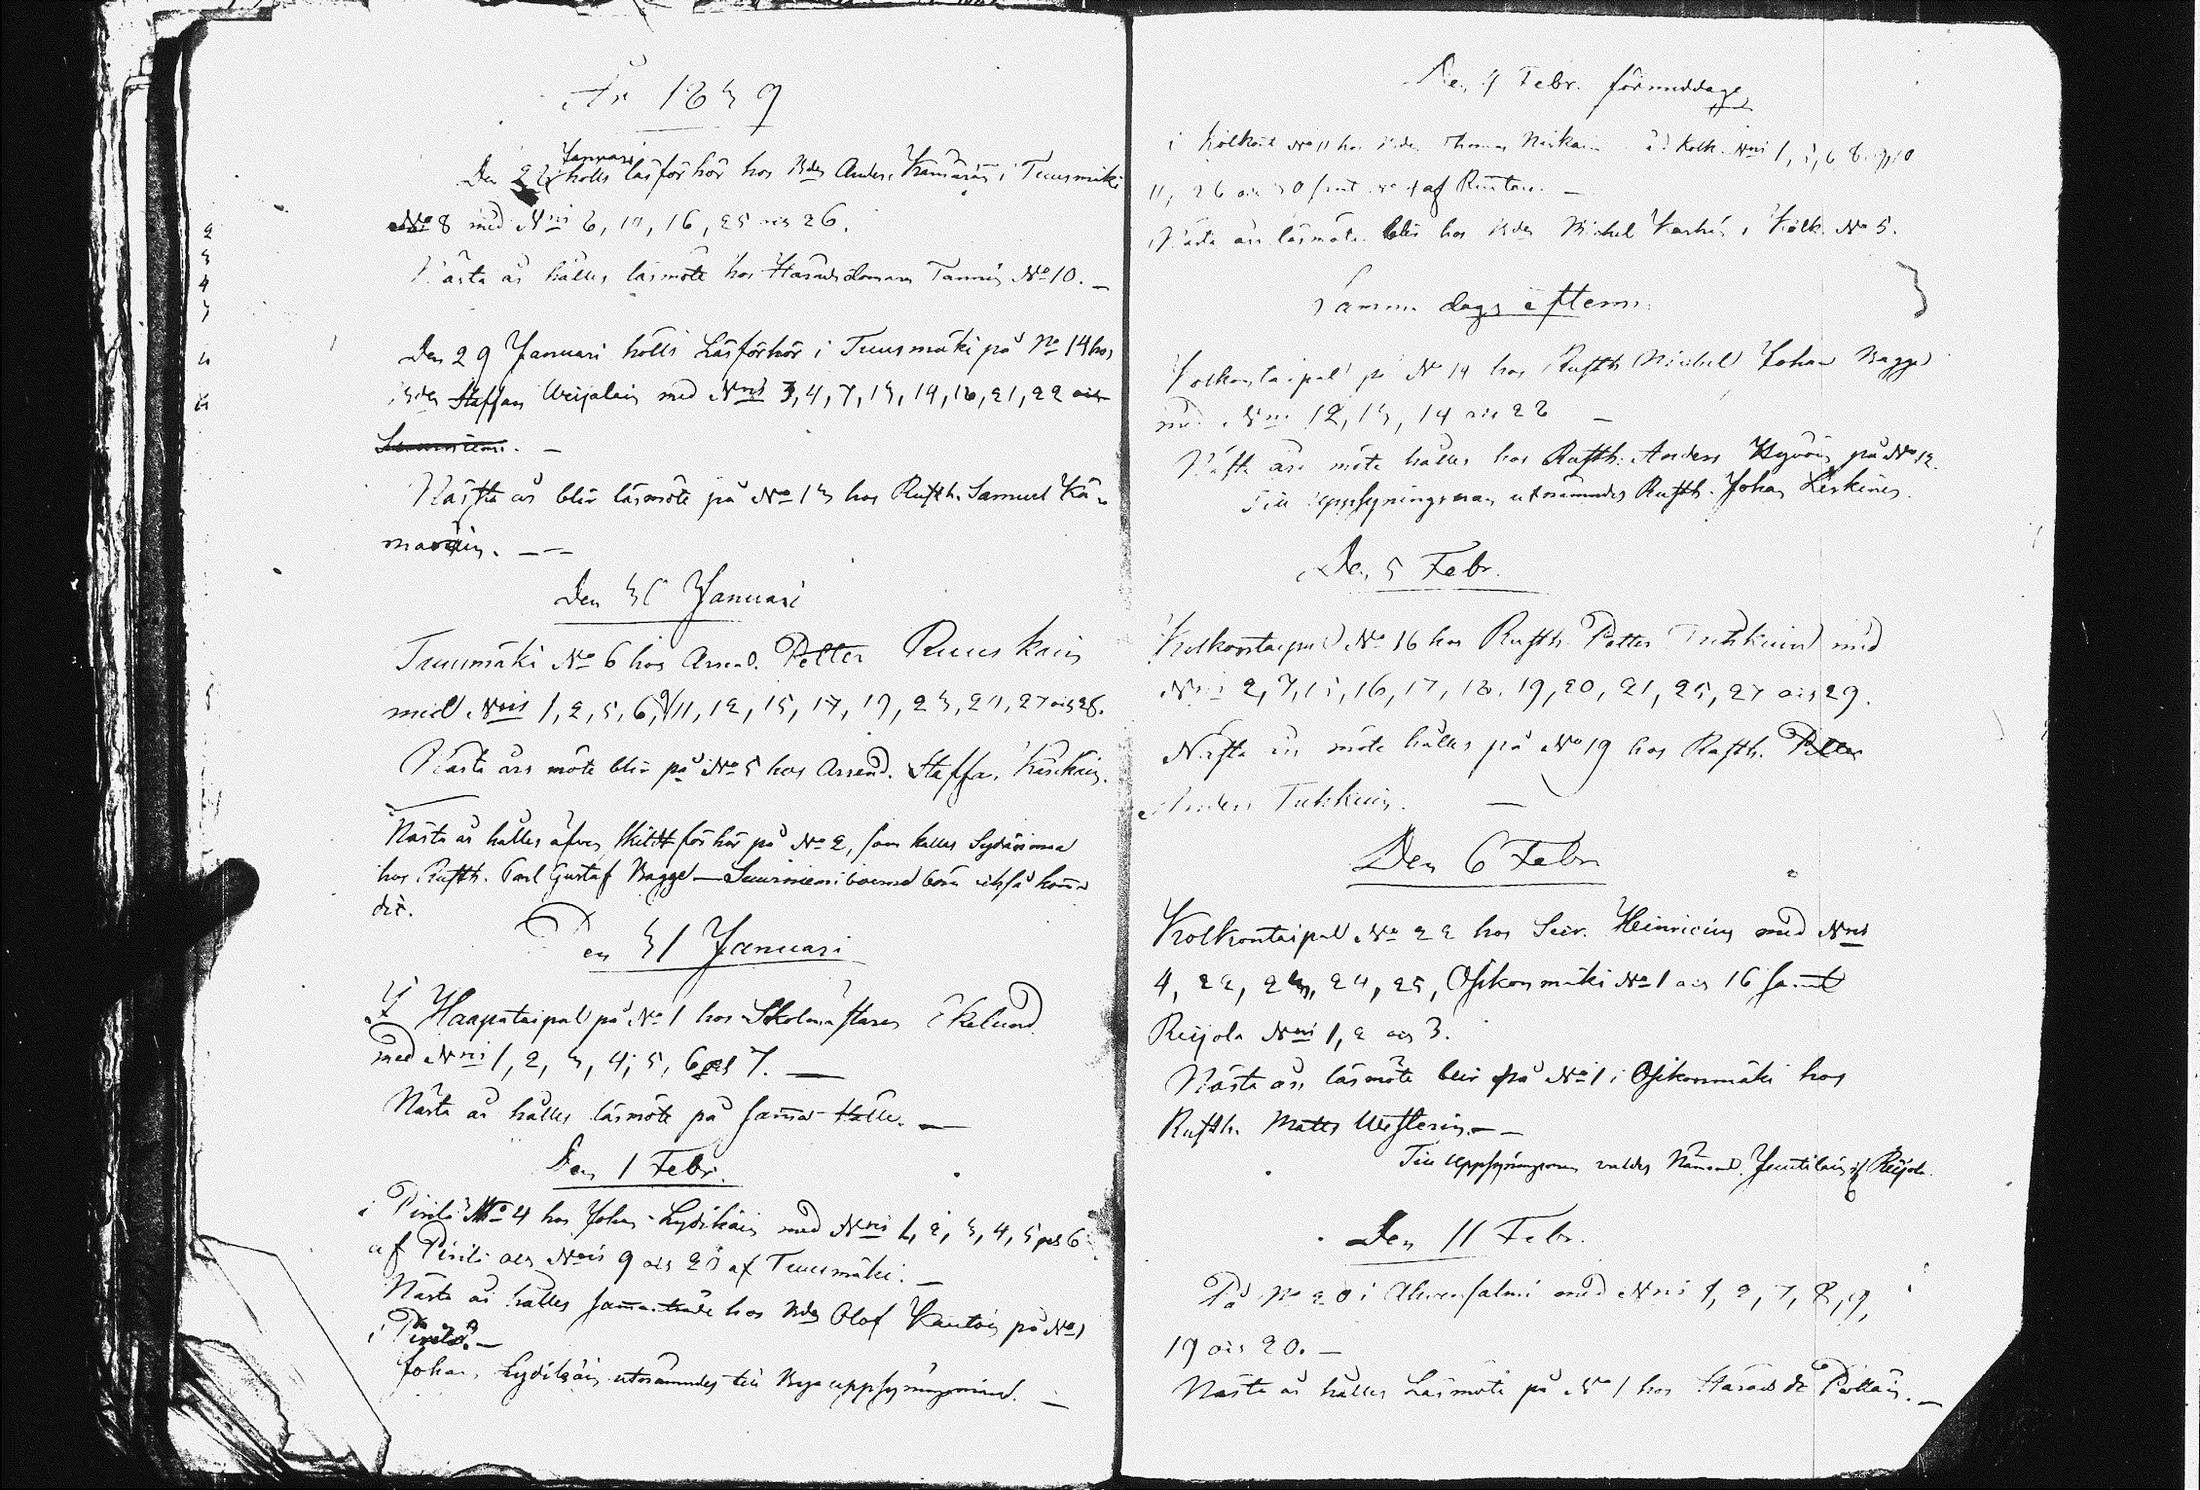 År 1839
Januari
Den 28 hölls läsförhör hos Bdn Anders Kämäräin i Tuusmäki
No 8 med Nris 6, 10, 16, 25 och 26.
Nästa år hålles läsmöte hos Häradsdomare Tannin No 10. –
Den 29 Januari hölls Läsförhör i Tuusmäki på No 14 hos
Bdn Staffan Weijalain med Nris 3, 4, 7, 13, 14, 18, 21, 22 och
Suurniemi. –
Nästa år blir läsmöte på No 13 hos Rusth. Samuel Kä-
märäin. – –
Den 30 Januari
Tuusmäki No 6 hos Arrend. Petter Ruuskain
med Nris 1, 2, 5, 6, 9, 11, 12, 15, 17, 19, 23, 24, 27 och 28.
Nästa års möte blir på No 5 hos Arrend. Staffan Käiskäin.
Nästa år hålles äfven skildt förhör på No 2, som kallas Sydänmaa
hos Rusth. Carl Gustaf Bagge – Suurniemiboerne böra också komma
dit.
Den 31 Januari
I Haapataipal på No 1 hos Skolmästaren Ekelund
med Nris 1, 2, 3, 4, 5, 6 och 7. –
Nästa år hålles läsmöte på samma ställe. –
Den 1 Febr.
i Pirilä No 4 hos Johan Lydikäin med Nris 1, 2, 3, 4, 5 och 6
af Pirilä och Nris 9 och 20 af Tuusmäki. –
Nästa år hålles samma hos Bdn Olof Kautoin på No 1
i Pirilä. –
Johan Lydikäin utnämndes till Byauppsyningsman. –
Den 4 Febr. förmiddagen
i Kolkont No 11 hos Bdn Thomas af Kolk. Nris 1, 3, 6, 8, 9, 10
11, 26 och 30 samt No 4 af
Nästa års läsmöte blir hos Bdn Michel i Kolk. No 5.
Samma dags efterm.
Kolkontaipal på No 14 hos Rusth. Michel Johan Bagge
med Nris 12, 13, 14 och 28 –
Nästa års möte hålles hos Rusth. Anders Hyvöin på No 12.
Till uppsyningsman utnämndes Rusth. Johan Leskinen.
Den 5 Febr.
Kolkontaipal No 16 hos Rusth. Petter Tuhkuin med
Nris 2, 7, 15, 16, 17, 18, 19, 20, 21, 25, 27 och 29.
Nästa års möte hålles på No 19 hos Rusth. Petter
Anders Tuhkuin. –
Den 6 Febr
Kolkontaipal No 22 hos Secr. Heinricius med Nris
4, 22, 23, 24, 25, Osikonmäki No 1 och 16 samt
Reijola Nris 1, 2 och 3.
Nästa års läsmöte blir på No 1 i Osikonmäki hos
Rusth. Matts Westerin. – –
Till Uppsyningsman valdes Nämnd. Juutilain i Reijola.
Den 11 Febr.
På No 20 i Ahvensalmi med Nris 1, 2, 7, 8, 9,
19 och 20. –
Nästa år hålles Läsmöte på No 1 hos Häradsd. Pöllän. –